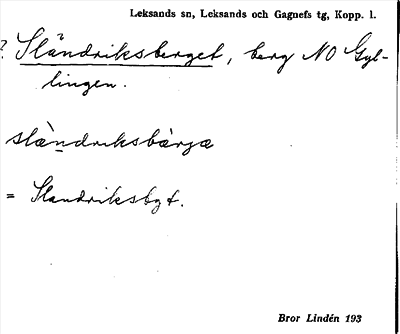 Leksands sn, Leksands och Gagnefs tg, Kopp. l.
? Sländriksberget, berg NO Gyl-
lingen.
slàndriksbàrgæ
= Slandriksbgt.
Bror Lindén 193